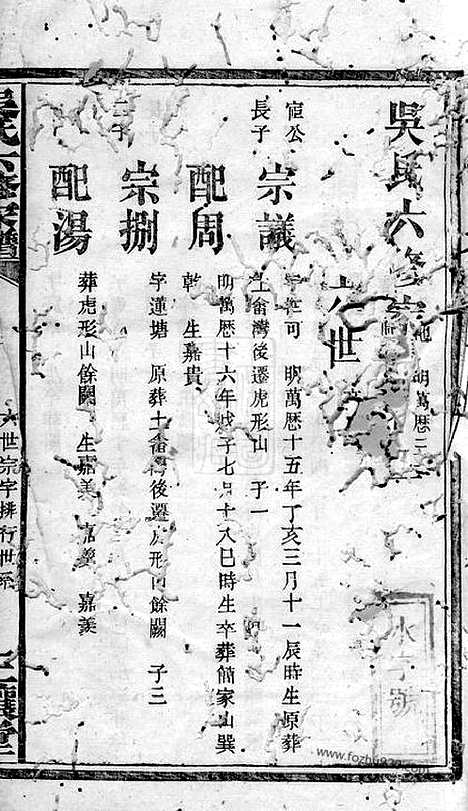 吳氏六修
明萬曆二
世
㝎公長子
宗議
可 明萬曆十五年丁亥三月十一辰時生原葬
土畬灣後遷虎形山 子一
配周
明萬曆十六年戊子七月十八巳時生卒葬簡家山巽
乾 生嘉貴
二子
宗捌
字蓮塘 原葬土畬灣後遷虎形山餘闕 子三
配湯
葬虎形山餘闕 生嘉美 嘉 嘉羨
吳氏六修宗譜
世宗字排行世系
水字號
www.fozhu920.com